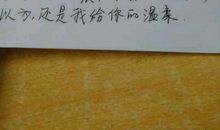 以为,还是我给你的温柔.